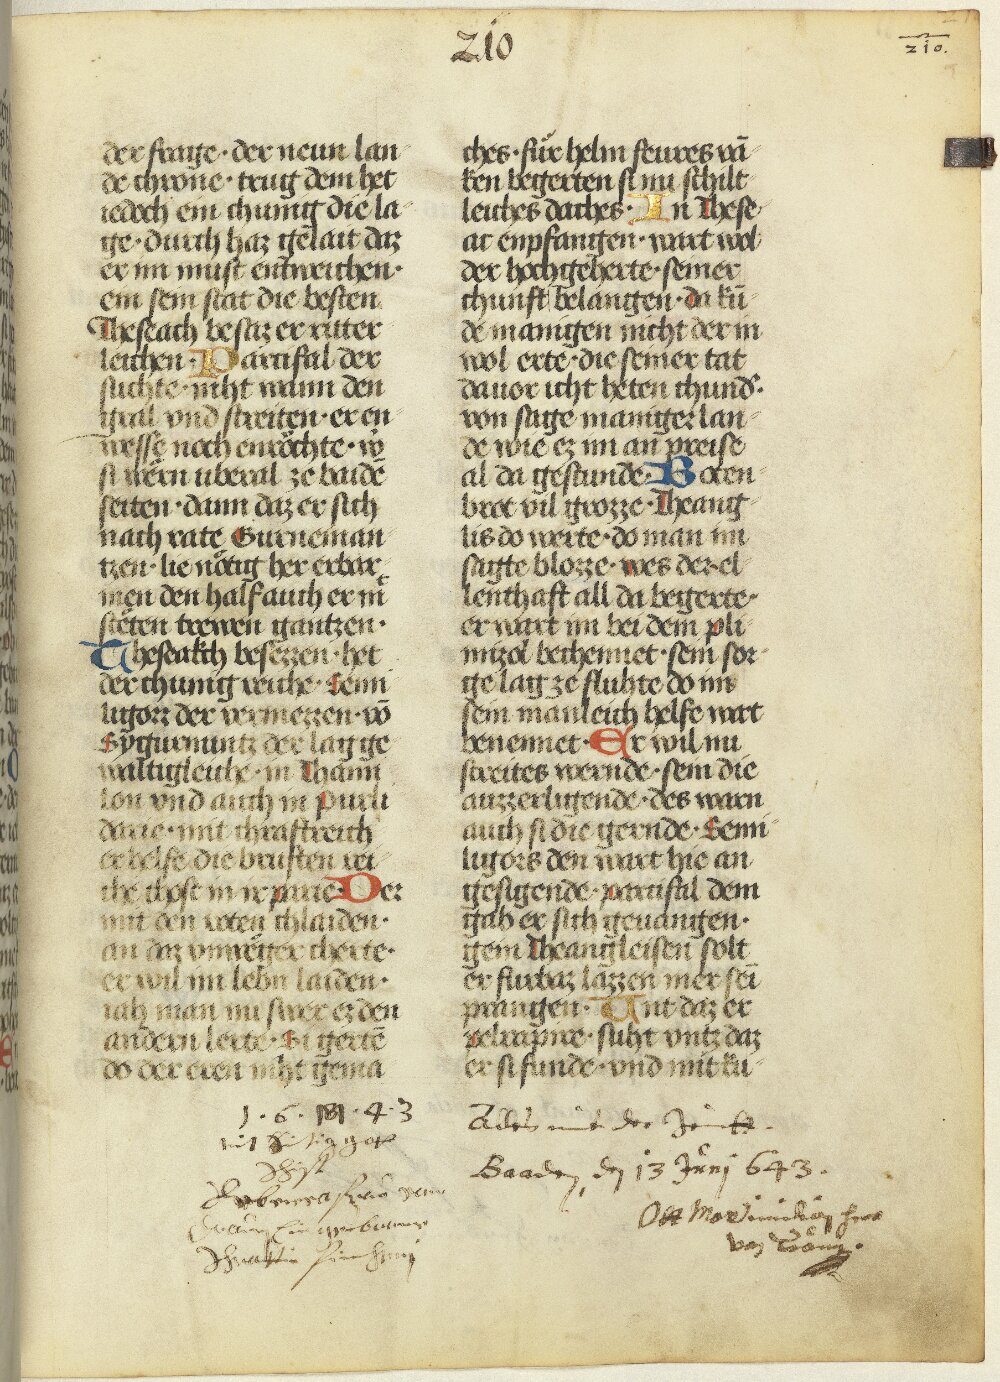 210
210.
der frage · der neun lan-
de chrone · trug dem het
iedoch ein chunig die la-
ge · durch haz gelait daz
er im must entweichen ·
ein sein stat die besten
Theseach besaz er riter
leichen · Parcifal der
suchte · niht wann den
gral vnd streiten · er en-
wesse noch enröchte · wo
si wern uberal ze baidē
seiten · dann daz er sich
nach rate Gurneman-
tzen · lie nötig her erbar-
men den half auch er mit
steten trewen gantzen ·
Theseakch besezzen · het
der chunig reiche · Senn
ligorz der vermezzen · vō
Sygurnuntz der lag ge-
waltigleiche · in Thami
lon vnd auch in purli
darie · mit chraftreich
er helfe die brusten rei-
che thost in ir parie · Der
mit den roten chlaiden ·
an daz vnweger cherte ·
er wil im lebn laiden ·
iah man im swer ez den
andern lerte · Si gertē
do der eren niht gema
ches · für helm feures vā-
ken begerten si nu schilt
leiches daches · In These-
ac enpfangen · wart wol
der hochgeherte · seiner
chunft belangen · da kū-
de manigen nicht der in
wol erte · die seiner tat
dauor icht heten chund ·
von sage maniger lan-
de wie ez im an preise
al da gestunde · Boten-
brot vil grozze · Theang-
lis do werte · do man im
sagte blozze · wes der el-
lenthaft all da begerte ·
er wart im bei dem pli-
mizol bechennet · sein sor-
ge lag ze fluhte do im
sein manleich helfe wart
benennet · Er wil nu
streites wernde · sein die
auzzerligende · des warn
auch si die gernde · Senni-
ligors den wart hie an
gesigende · parcifal dem
gab er sich geuangen ·
gein Theangleisen solt
er furbaz lazzen mer sei
prangen · Unt daz er
pelrapire · suht vntz daz
er si funde · vnd mit ku-
1 · 6 · · 4 · 3
Alles mit der
Baaden, den 13 Juni 643 .
Ott
von